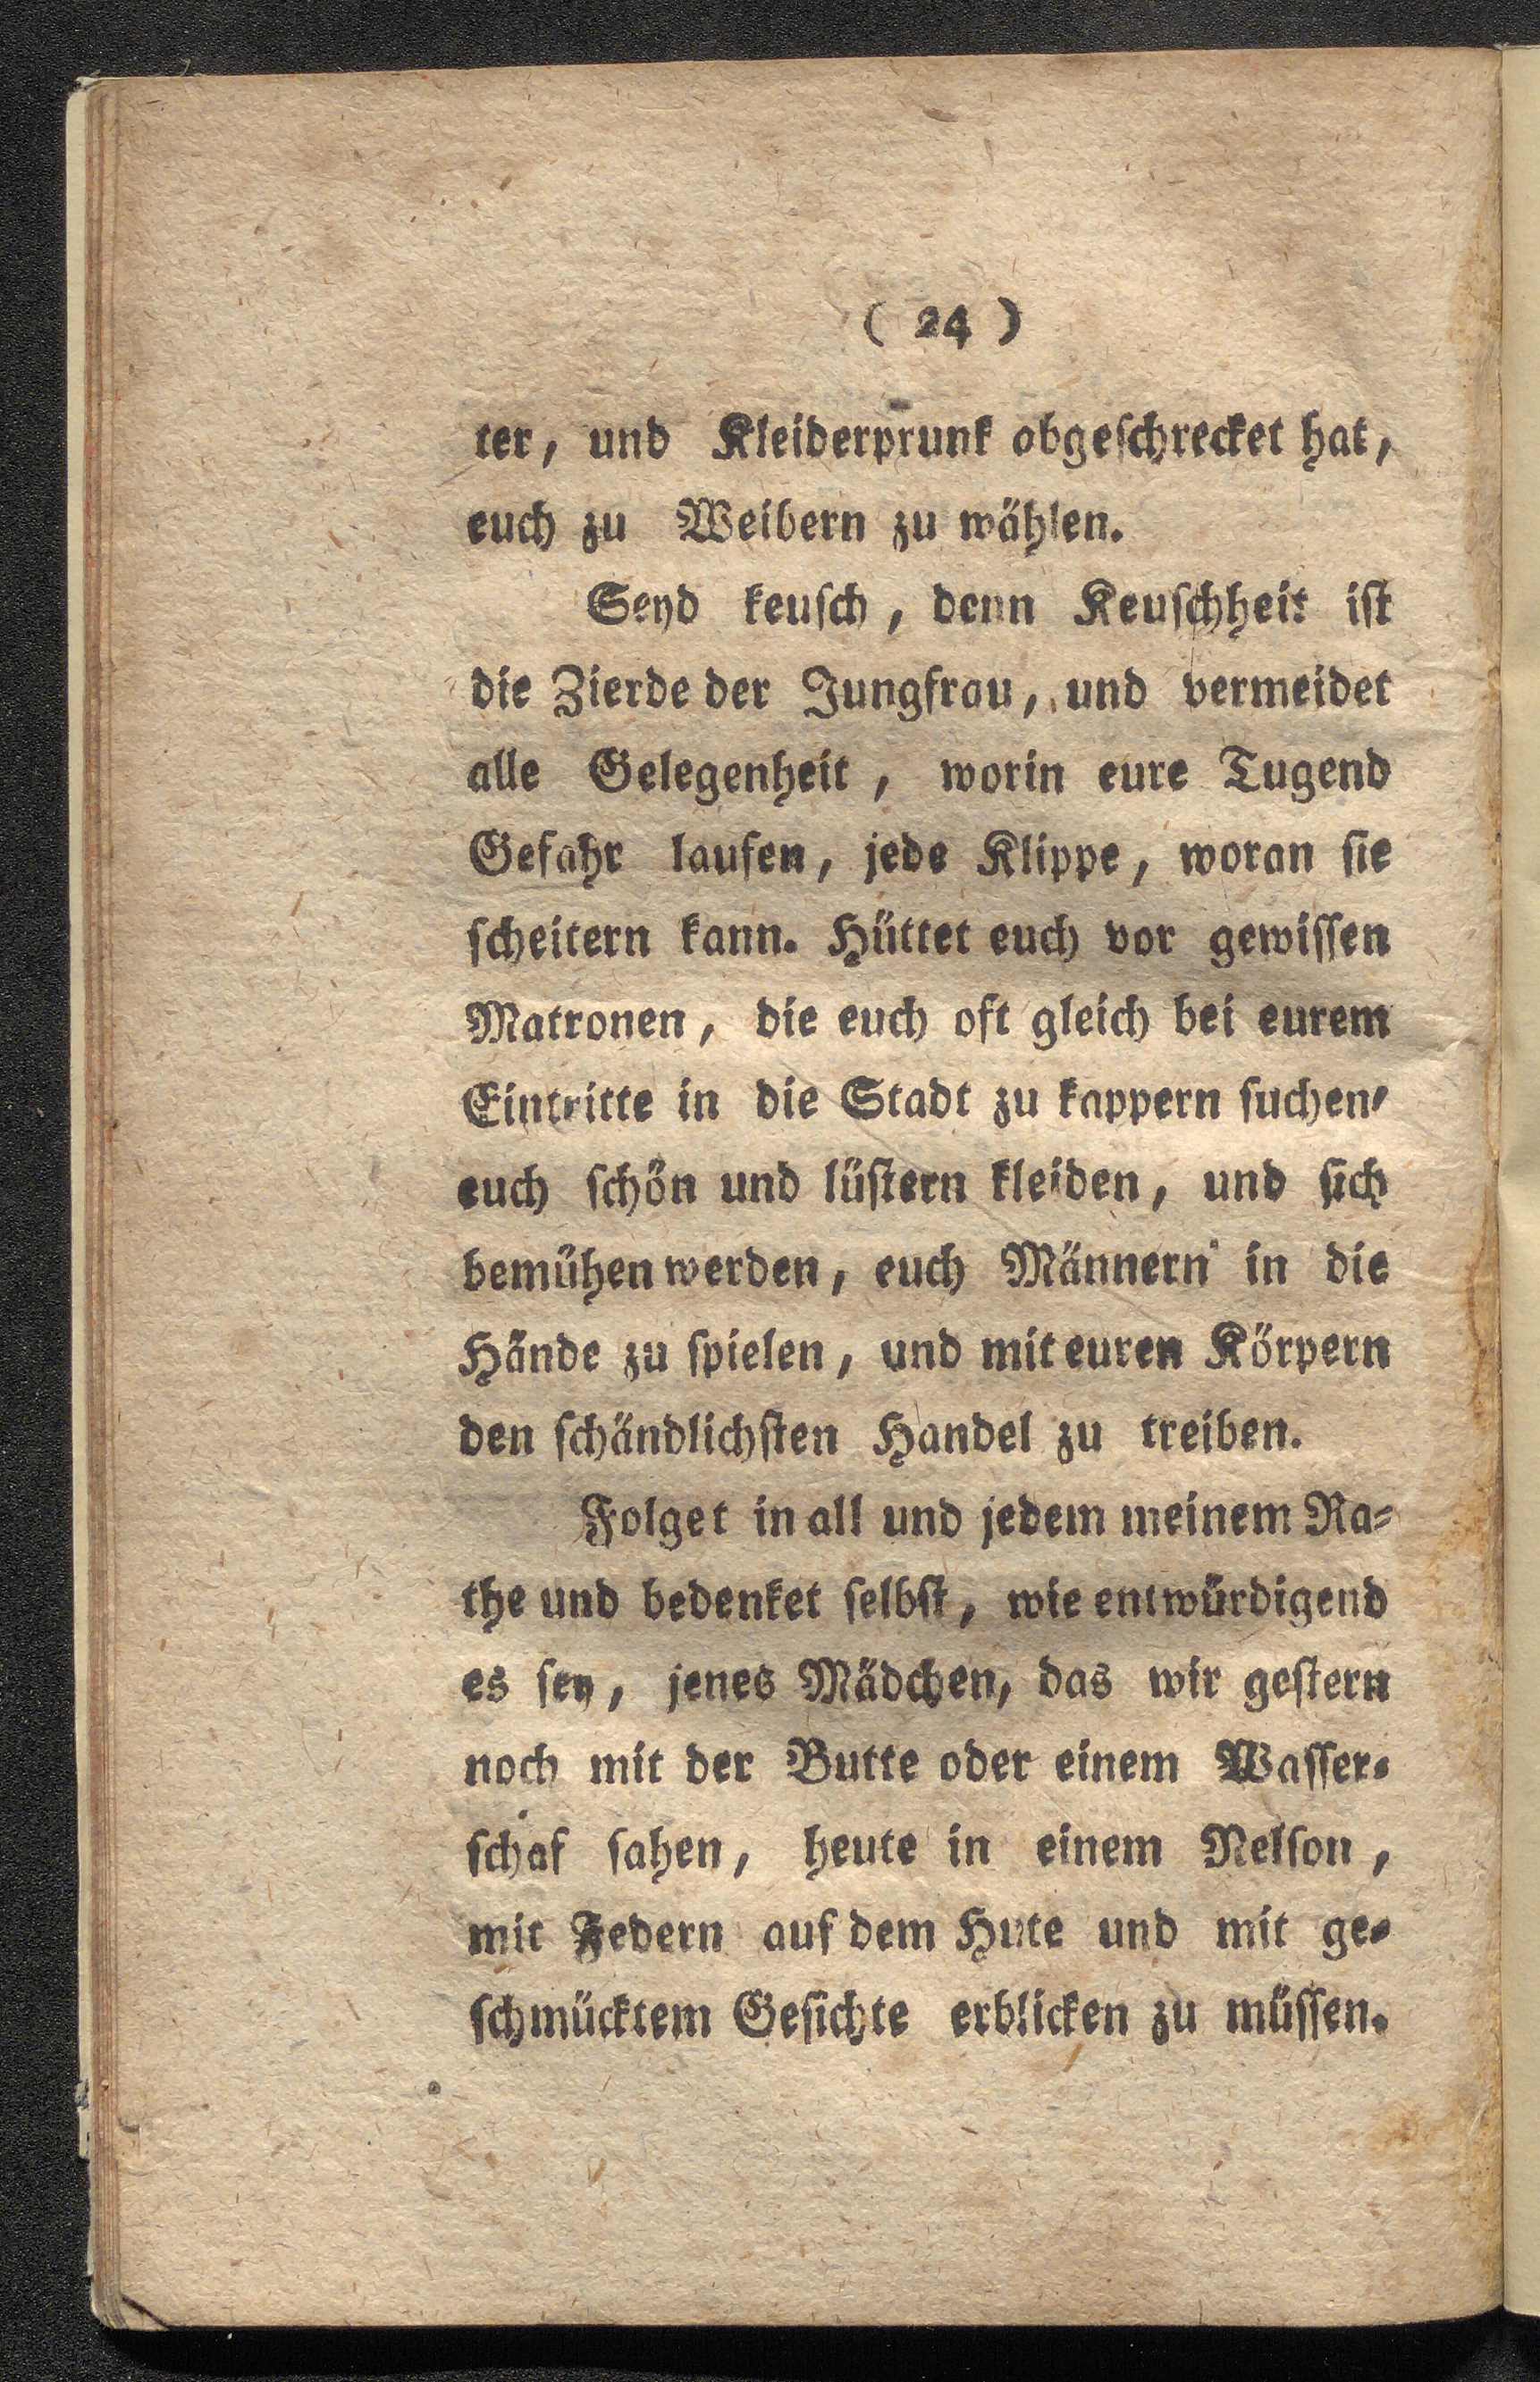 ( 24 )
ter, und Kleiderprunk abgeschrecket hat,
euch zu Weibern zu wählen.
Seyd keusch, denn Keuschheit ist
die Zierde der Jungfrau, und vermeidet
alle Gelegenheit, worin eure Tugend
Gefahr laufen, jede Klippe, woran sie
scheitern kann. Hüttet euch vor gewissen
Matronen, die euch oft gleich bei eurem
Eintritte in die Stadt zu kappern suchen,
euch schön und lüstern kleiden, und sich
bemühen werden, euch Männern in die
Hände zu spielen, und mit euren Körpern
den schändlichsten Handel zu treiben.
Folget in all und jedem meinem Ra-
the und bedenket selbst, wie entwürdigend
es sey, jenes Mädchen, das wir gestern
noch mit der Butte oder einem Wasser-
schaf sahen, heute in einem Nelson,
mit Federn auf dem Hute und mit ge-
schmücktem Gesichte erblicken zu müssen.